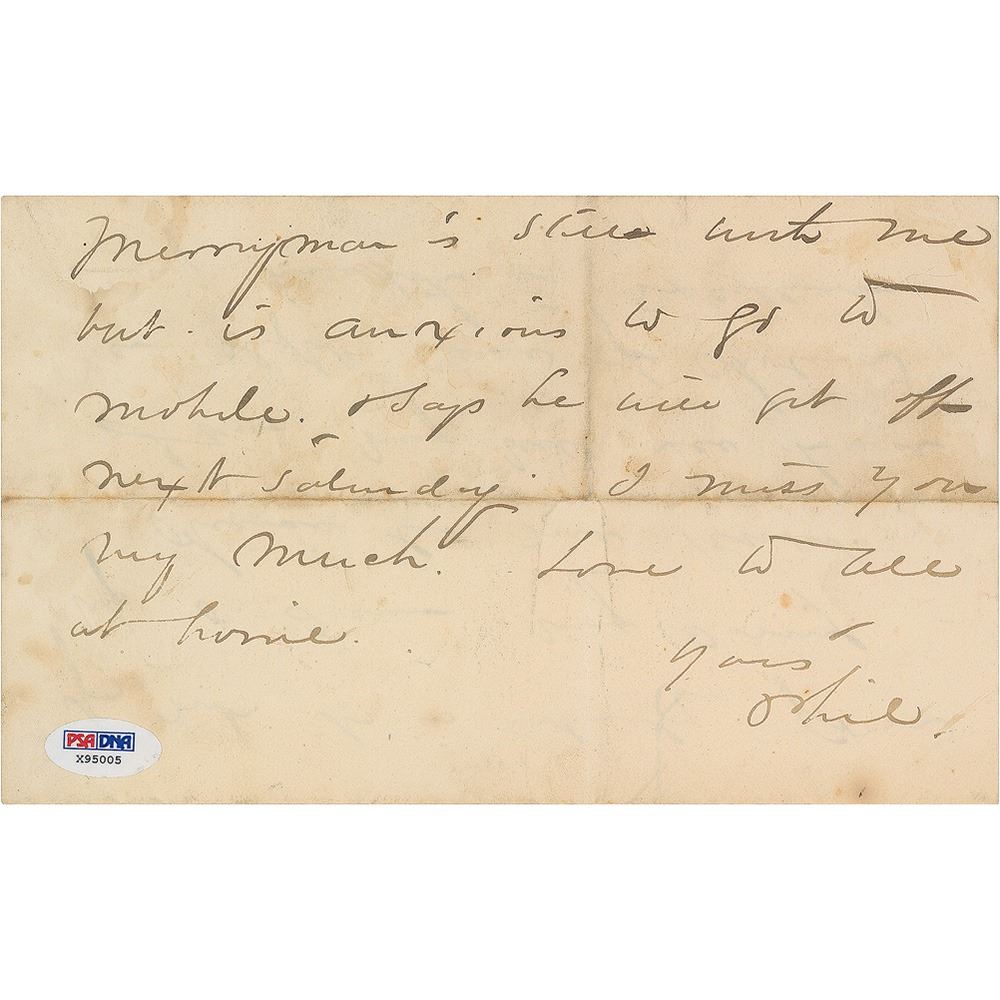 Merryman is still with me
but is anxious to go to
Mobile. Says he will get off
next Saturday. I miss you
very much. Love to all
at home.
yours
Phil.
PSA DNA
X95005